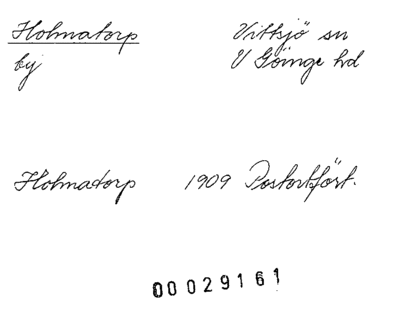 Holmatorp
by
Vittsjö sn
V Göinge hd
Holmatorp 1909 Postortfört.
00029161